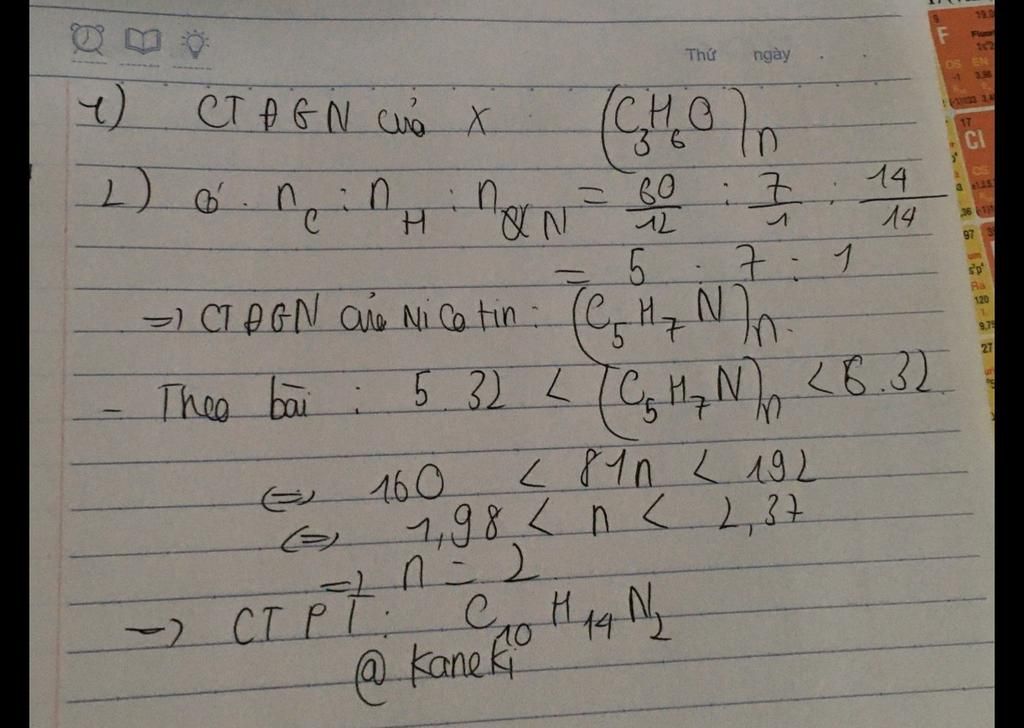 Thứ ngày
1) CTĐGN của X (C3H6O)n
2) Có. nC : nH : nN = 60/12 : 7/1 : 14/14
= 5 : 7 : 1
=> CTĐGN của Nicotin: (C5H7N)n.
- Theo bài : 5.32 < (C5H7N)n < 6.32
<=> 160 < 81n < 192
<=> 1,98 < n < 2,37
=> n = 2
-> CTPT: C10H14N2
@ Kaneki
F
Cl
17